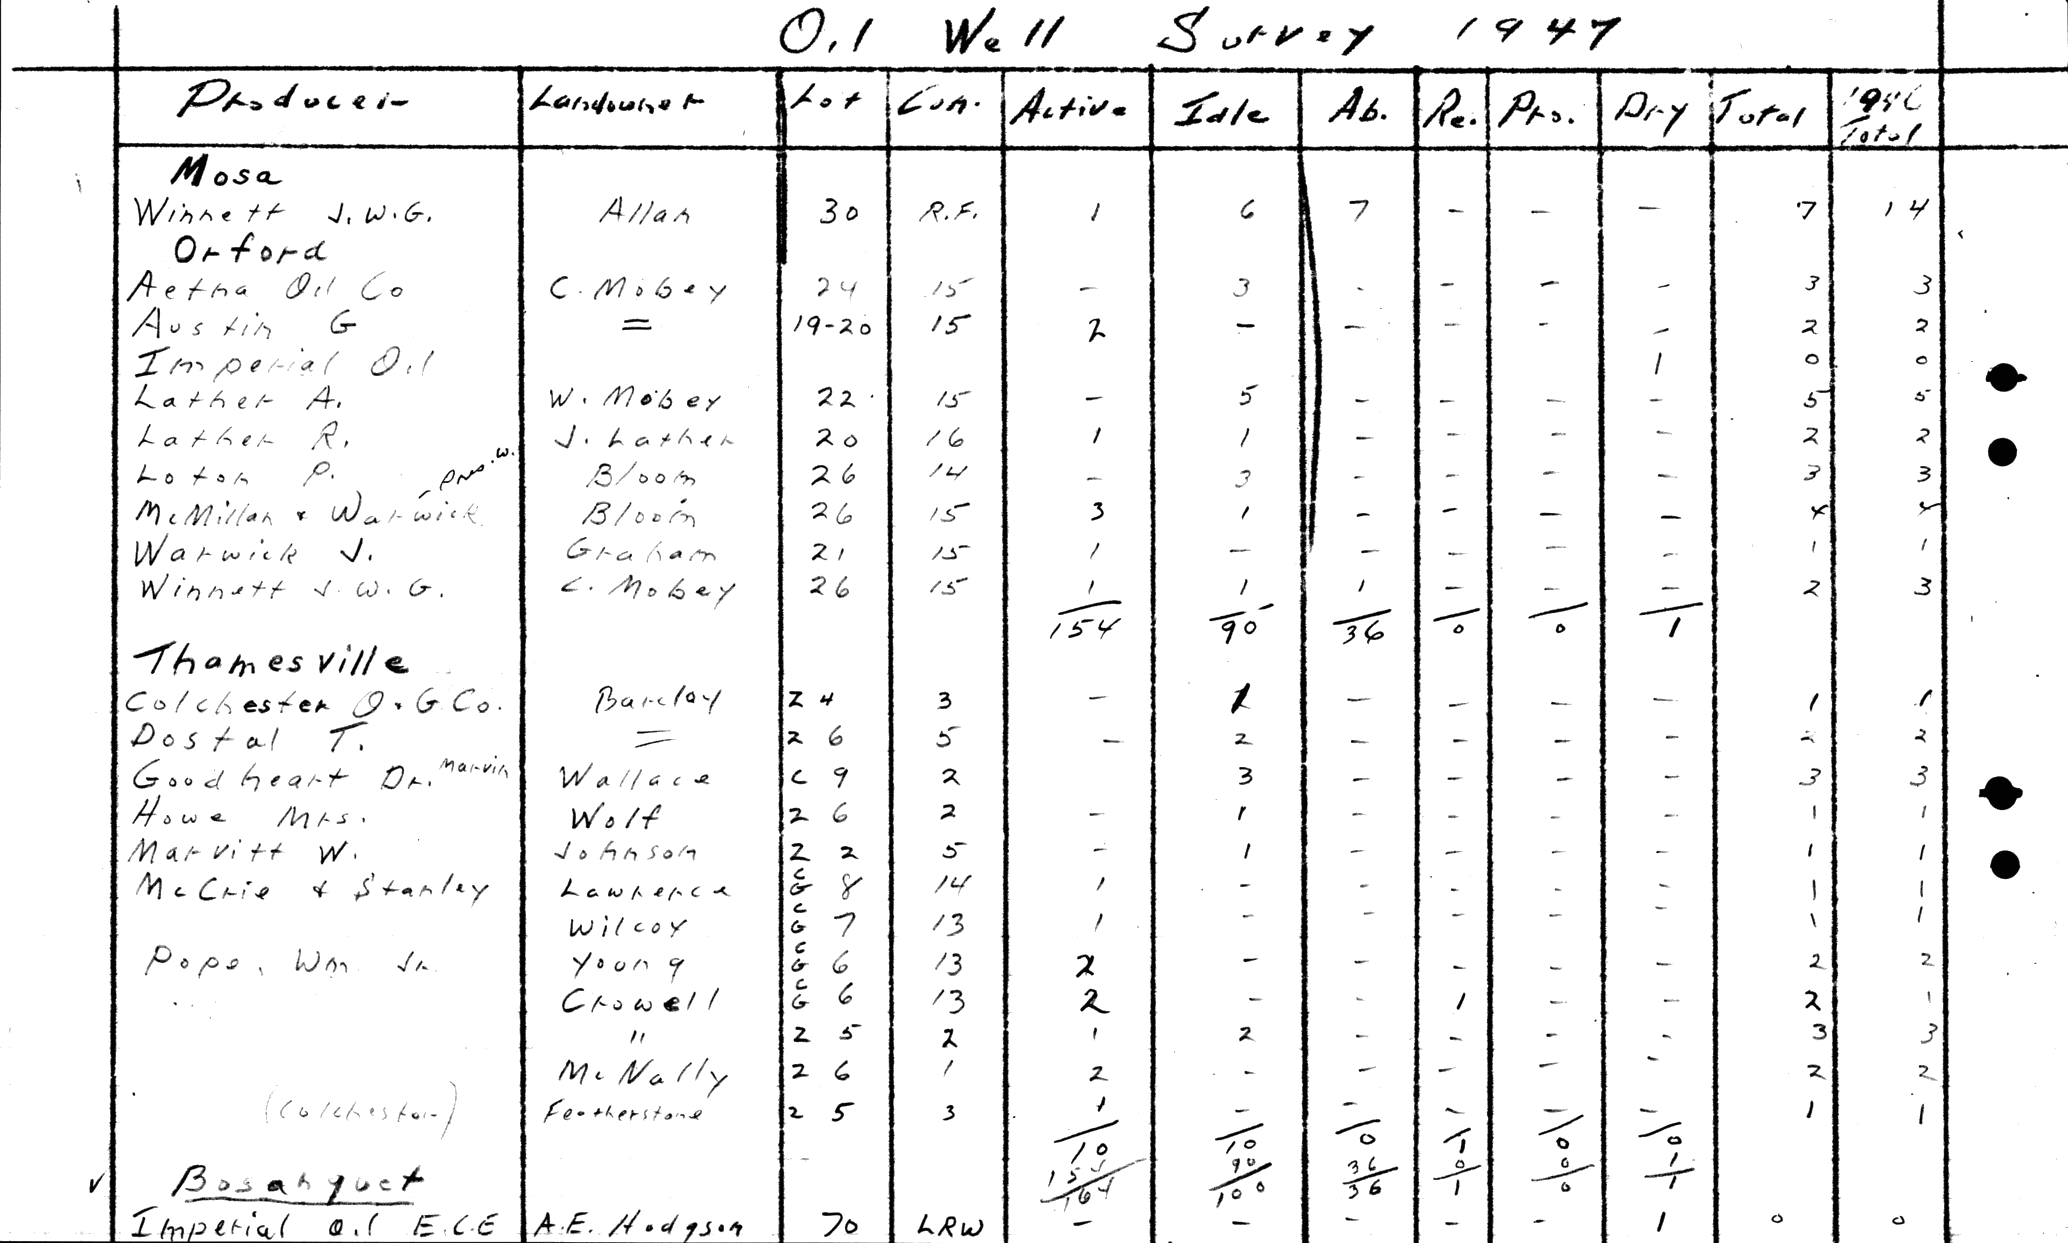 Oil Well Survey 1947
Producer Landowner Lot Con. Active Idle Ab. Re. Pro. Dry Total 1946 Total
Mosa
Winnett J.W.G. Allan 30 R.F. 1 6 7 - - - 7 14
Orford
Aetna Oil Co C. Mobey 24 15 - 3 - - - - 3 3
Austin G = 19-20 15 2 - - - - - 2 2
Imperial Oil 1 0 0
Lather A. W. Mobey 22 15 - 5 - - - - 5 5
Lather R. J. Lather 20 16 1 1 - - - - 2 2
Loton P. Bloom 26 14 - 3 - - - - 3 3
McMillan & Warwick Bloom 26 15 3 1 - - - - 4 4
Warwick J. Graham 21 15 1 - - - - - 1 1
Winnett J.W.G. C. Mobey 26 15 1 1 1 - - - 2 3
154 90 36 0 0 1
Thamesville
Colchester O.G.Co. Barclay Z 4 3 - 1 - - - - 1 1
Dostal T. = 2 6 5 - 2 - - - - 2 2
Goodheart Dr. Marvin Wallace C 9 2 3 - - - - 3 3
Howe Mrs. Wolf 2 6 2 - 1 - - - - 1 1
Marvitt W. Johnson Z 2 5 - 1 - - - - 1 1
McCrie & Stanley Lawrence G 8 14 1 - - - - - 1 1
Wilcox C G 7 13 1 - - - - - 1 1
Pope, Wm. Jr. Young C G 6 13 2 - - - - - 2 2
Crowell C G 6 13 2 - - 1 - - 2 1
" Z 5 2 1 2 - - - - 3 3
McNally 2 6 1 2 - - - - - 2 2
(Colchester) Featherstone 2 5 3 1 - - - - - 1 1
10 10 0 1 0 0
154 90 36 0 0 1
Bosanquet 164 100 36 1 0 1
Imperial Oil E.C.E A.E. Hodgson 70 LRW - - - - - 1 0 0